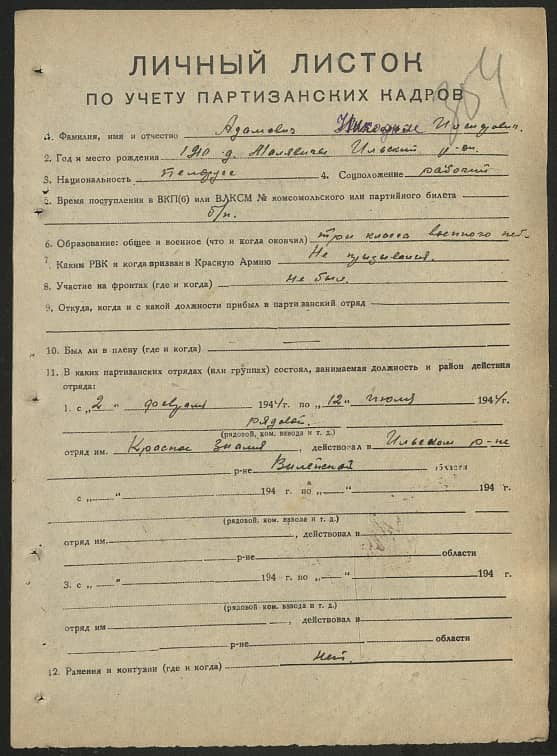 804
ЛИЧНЫЙ ЛИСТОК
ПО УЧЕТУ ПАРТИЗАНСКИХ КАДРОВ
1. Фамилия, имя и отчество Адамович Никодим
2. Год и место рождения 1910 г. Малявичи Ильский р-он.
3. Национальность белорус 4. Соцположение рабочий
5. Время поступления в ВКП(б) или ВЛКСМ № комсомольского или партийного билета
б/п.
6. Образование: общее и военное (что и когда окончил) три класса военного нет
7. Каким РВК и когда призван в Красную Армию Не призывался.
8. Участие на фронтах (где и когда) не был.
9. Откуда, когда и с какой должности прибыл в партизанский отряд
10. Был ли в плену (где и когда)
11. В каких партизанских отрядах (или группах) состоял, занимаемая должность и район действия
отряда:
1. с „2 “ февраля 1944 г. по „12“ июля 1944 г.
рядовой.
(рядовой, ком. взвода и т. д.)
отряд им. Красное Знамя, действовал в Ильском р-не
р-не Вилейской области
с „ “ 194 г. по „ “ 194 г.
(рядовой, ком. взвода и т. д.)
отряд им. , действовал в
р-не области
3. с „ “ 194 г. по „ “ 194 г.
(рядовой, ком. взвода и т. д.)
отряд им , действовал в
р-не области
12. Ранения и контузии (где и когда) нет.